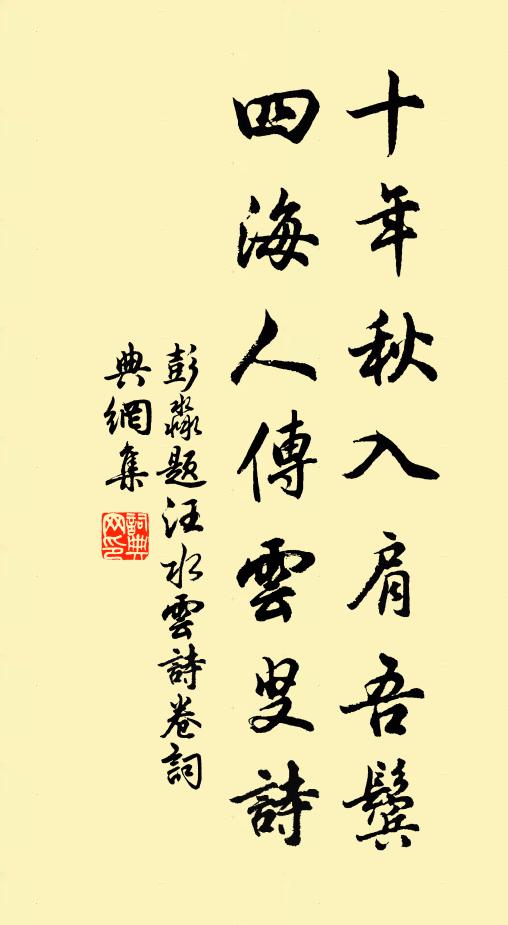 十年秋入肩吾鬢
四海人傳雲叟詩
彭淼題汪水雲詩卷詞
典網集
詞典網印